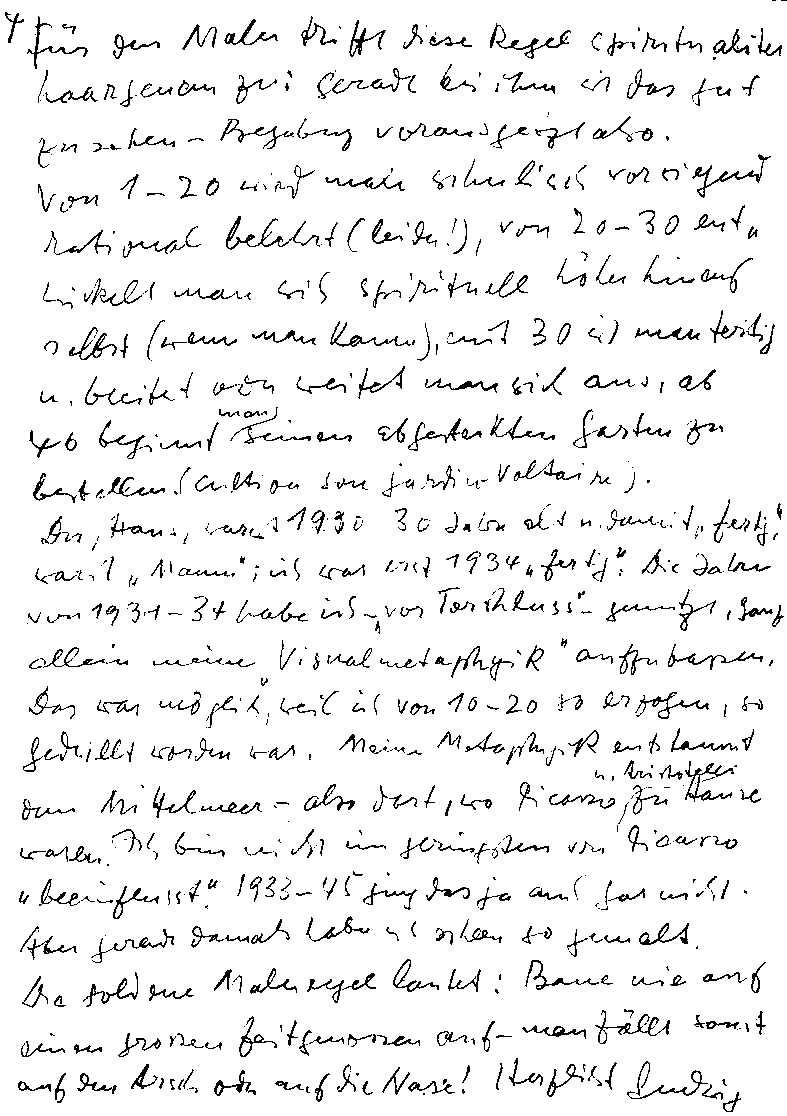 4 Für den Maler trifft diese Regel spiritualiter
haargenau zu; gerade bei ihm ist das gut
zu sehen – Begabung vorausgesetzt also.
Von 1–20 wird man schulisch vorwiegend
rational belehrt (leider!), von 20–30 ent„
wickelt man sich spirituell höher hinauf
selbst (wenn man kann), mit 30 ist man fertig
u. breitet oder weitet man sich aus, ab
40 beginnt man seinen abgesteckten Garten zu
bestellen (cultion son jardin – Voltaire).
Du, Hans, warst 1930 30 Jahre alt u. damit „fertig",
warst „Mann"; ich war erst 1934 „fertig". Die Jahre
von 1931–34 habe ich – „vor Torschluss" – genutzt, ganz
allein meine „Visualmetaphysik" aufzubauen.
Das war möglich, weil ich von 10–20 so erzogen, so
gedrillt worden war. Meine Metaphysik entstammt
dem Mittelmeer – also dort, wo Picasso u. Aristoteles zu Hause
waren. Ich bin nicht im geringsten von Picasso
„beeinflusst". 1933–45 ging das ja auch gar nicht.
Aber gerade damals habe ich schon so gemalt.
Die goldene Malerregel lautet: Baue nie auf
einen grossen Zeitgenossen auf – man fällt sonst
auf den Arsch oder auf die Nase! Herzlichst Ludwig